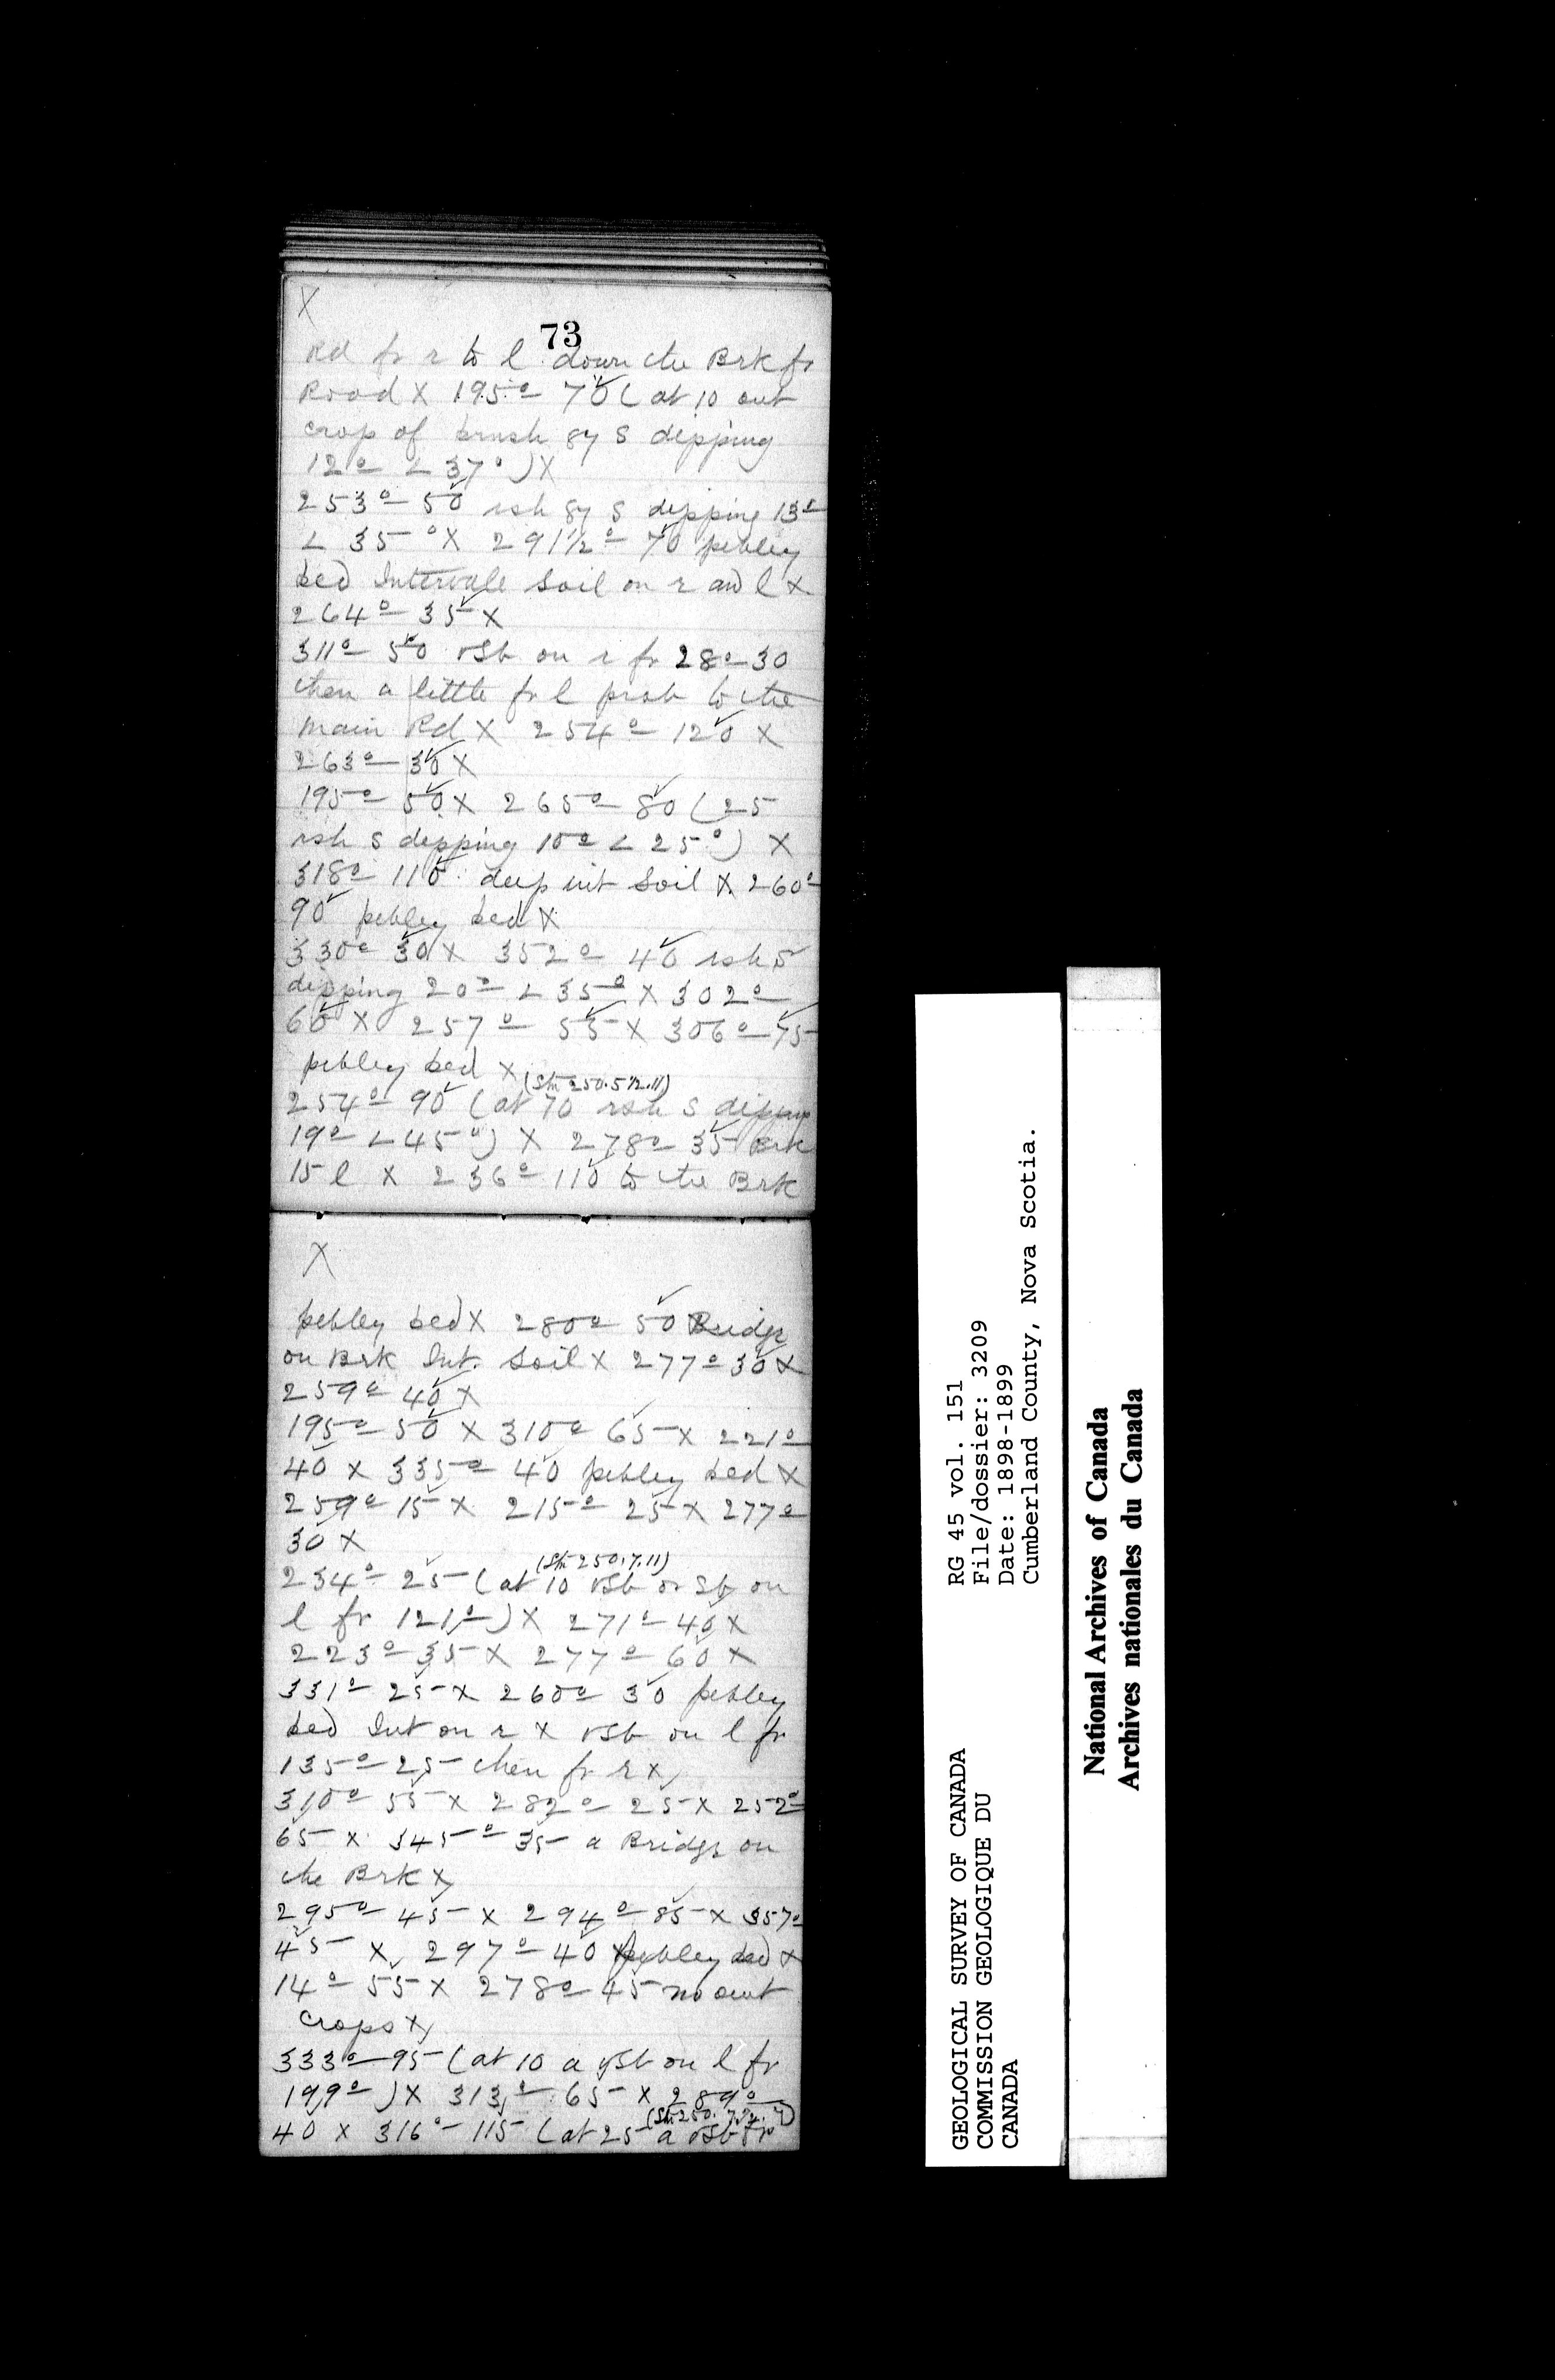 X
73
Rd fr r to l down the Brk fr
Road X 195° 70 (at 10 out
crop of brnsh gy S dipping
12° < 37°) X
253° 50 rsh gy S dipping 13°
< 35° X 291½° 70 pebley
bed Intervale Soil on r and l X
264° 35 X
311° 50 vSb on r fr 28° 30
then a little fr l prob to the
main Rd X 254° 120 X
263° 30 X
195° 50 X 265° 80 (25
rsh S dipping 10° < 25°) X
318° 110 deep int Soil X 260°
90 pebley bed X
330° 30 X 352° 40 rsh S
dipping 20° < 35° X 302°
60 X 257° 55 X 306° 75
pebley bed X
(Stn 250.5½.11)
254° 90 (at 70 rsh S dipping
19° < 45°) X 278° 35 Brk
15 l X 236° 110 to the Brk
X
pebley bed X 280° 50 Bridge
on Brk Int. Soil X 277° 30 X
259° 40 X
195° 50 X 310° 65 X 221°
40 X 335° 40 pebley bed X
259° 15 X 215° 25 X 277°
30 X
(Stn 250.7.11)
234° 25 (at 10 vSb or Sb on
l fr 121°) X 271° 40 X
223° 35 X 277° 60 X
331° 25 X 260° 30 pebley
bed Int on r X vSb on l fr
135° 25 then fr r X
310° 55 X 282° 25 X 252°
65 X 345° 35 a Bridge on
the Brk X
295° 45 X 294° 85 X 357°
45 X 297° 40 pebley bed X
14° 55 X 278° 45 no out
crops X
333° 95 (at 10 a vSb on l fr
199°) X 313° 65 X 289°
40 X 316° 115 (at 25 a vSb fr
GEOLOGICAL SURVEY OF CANADA
COMMISSION GEOLOGIQUE DU
CANADA
RG 45 vol. 151
File/dossier: 3209
Date: 1898-1899
Cumberland County, Nova Scotia.
National Archives of Canada
Archives nationales du Canada